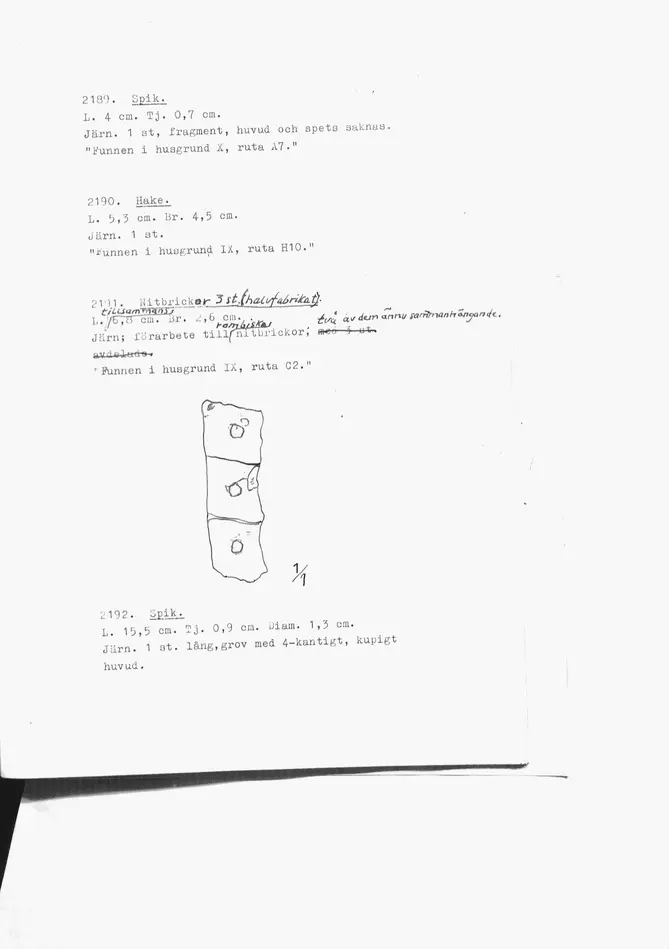 2189. Spik.
L. 4 cm. Tj. 0,7 cm.
Järn. 1 st, fragment, huvud och spets saknas.
"Funnen i husgrund X, ruta A7."
2190. Hake.
L. 5,3 cm. Br. 4,5 cm.
Järn. 1 st.
"Funnen i husgrund IX, ruta H10."
2191. Nitbrickor 3 st. (halvfabrikat).
tillsammans
L. 6,8 cm. Br. 2,6 cm.
rombiska
två av dem ännu sammanhängande.
Järn; förarbete till nitbrickor; med 3 st.
avdelade.
"Funnen i husgrund IX, ruta C2."
1/1
2192. Spik.
L. 15,5 cm. Tj. 0,9 cm. Diam. 1,3 cm.
Järn. 1 st. lång,grov med 4-kantigt, kupigt
huvud.